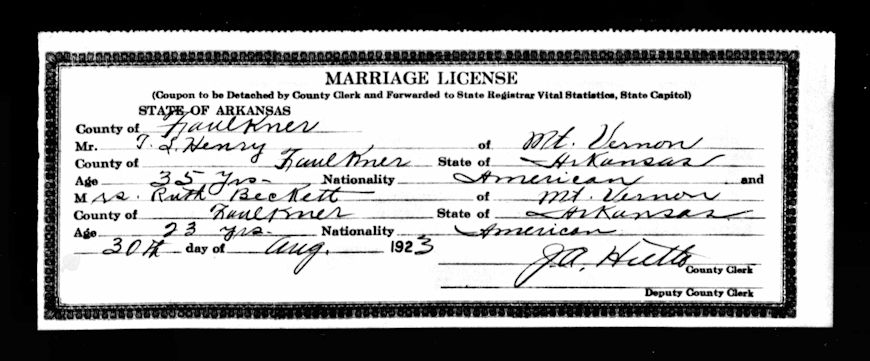 MARRIAGE LICENSE
(Coupon to be Detached by County Clerk and Forwarded to State Registrar Vital Statistics, State Capitol)
STATE OF ARKANSAS
County of Faulkner
Mr. T. S. Henry of Mt. Vernon
County of Faulkner State of Arkansas
Age 35 Yrs. Nationality American and
Mrs. Ruth Beckett of Mt. Vernon
County of Faulkner State of Arkansas
Age 23 yrs. Nationality American
30th day of Aug. 1923
J.A. Hutto
County Clerk
Deputy County Clerk